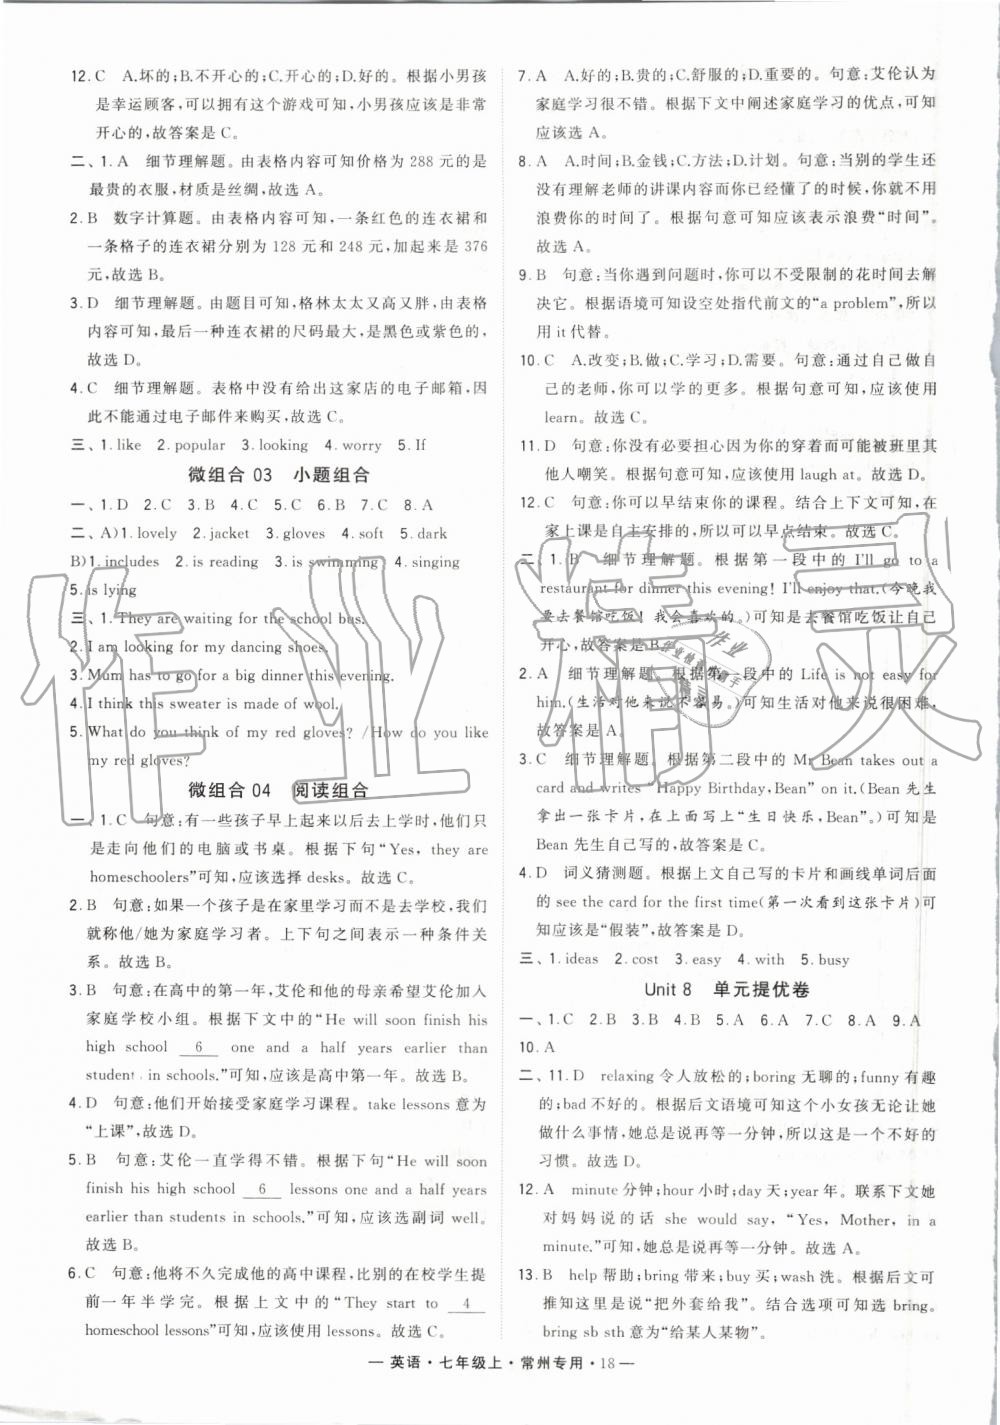 12. C　A.坏的;B.不开心的;C.开心的;D.好的。根据小男孩
是幸运顾客,可以拥有这个游戏可知,小男孩应该是非常
开心的,故答案是 C。
二、1. A　细节理解题。由表格内容可知价格为 288 元的是
最贵的衣服,材质是丝绸,故选 A。
2. B　数字计算题。由表格内容可知,一条红色的连衣裙和
一条格子的连衣裙分别为 128 元和 248 元,加起来是 376
元,故选 B。
3. D　细节理解题。由题目可知,格林太太又高又胖,由表格
内容可知,最后一种连衣裙的尺码最大,是黑色或紫色的,
故选 D。
4. C　细节理解题。表格中没有给出这家店的电子邮箱,因
此不能通过电子邮件来购买,故选 C。
三、1. like　2. popular　3. looking　4. worry　5. If
微组合 03　小题组合
一、1. D　2. C　3. B　4. C　5. B　6. B　7. C　8. A
二、A)1. lovely　2. jacket　3. gloves　4. soft　5. dark
B)1. includes　2. is reading　3. is swimming　4. singing
5. is lying
三、1. They are waiting for the school bus.
2. I am looking for my dancing shoes.
3. Mum has to go for a big dinner this evening.
4. I think this sweater is made of wool.
5. What do you think of my red gloves? /How do you like
my red gloves?
微组合 04　阅读组合
一、1. C　句意:有一些孩子早上起来以后去上学时,他们只
是走向他们的电脑或书桌。根据下句“Yes, they are
homeschoolers”可知,应该选择 desks。故选 C。
2. B　句意:如果一个孩子是在家里学习而不是去学校,我们
就称他/她为家庭学习者。上下句之间表示一种条件关
系。故选 B。
3. B　句意:在高中的第一年,艾伦和他的母亲希望艾伦加入
家庭学校小组。根据下文中的“He will soon finish his
high school 6 one and a half years earlier than
students in schools.”可知,应该是高中第一年。故选 B。
4. D　句意:他们开始接受家庭学习课程。take lessons 意为
“上课”,故选 D。
5. B　句意:艾伦一直学得不错。根据下句“He will soon
finish his high school 6 lessons one and a half years
earlier than students in schools.”可知,应该选副词 well。
故选 B。
6. C　句意:他将不久完成他的高中课程,比别的在校学生提
前一年半学完。根据上文中的“They start to 4
homeschool lessons”可知,应该使用 lessons。故选 C。
7. A　A.好的;B.贵的;C.舒服的;D.重要的。句意:艾伦认为
家庭学习很不错。根据下文中阐述家庭学习的优点,可知
应该选 A。
8. A　A.时间;B.金钱;C.方法;D.计划。句意:当别的学生还
没有理解老师的讲课内容而你已经懂了的时候,你就不用
浪费你的时间了。根据句意可知应该表示浪费“时间”。
故选 A。
9. B　句意:当你遇到问题时,你可以不受限制的花时间去解
决它。根据语境可知设空处指代前文的“a problem”,所以
用 it 代替。
10. C　A.改变;B.做;C.学习;D.需要。句意:通过自己做自
己的老师,你可以学的更多。根据句意可知,应该使用
learn。故选 C。
11. D　句意:你没有必要担心因为你的穿着而可能被班里其
他人嘲笑。根据句意可知,应该使用 laugh at。故选 D。
12. C　句意:你可以早结束你的课程。结合上下文可知,在
家上课是自主安排的,所以可以早点结束。故选 C。
二、1. B　细节理解题。根据第一段中的 I'll go to a
restaurant for dinner this evening! I'll enjoy that.(今晚我
要去餐馆吃饭!我会喜欢的。)可知是去餐馆吃饭让自己
开心,故答案是 B。
2. A　细节理解题。根据第二段中的 Life is not easy for
him.(生活对他来说不容易。)可知生活对他来说很困难,
故答案是 A。
3. C　细节理解题。根据第二段中的 Mr Bean takes out
a card and writes “Happy Birthday, Bean” on it.(Bean 先生
拿出一张卡片,在上面写上“生日快乐,Bean”。)可知是
Bean 先生自己写的,故答案是 C。
4. D　词义猜测题。根据上文自己写的卡片和画线单词后面
的 see the card for the first time(第一次看到这张卡片)可
知应该是“假装”,故答案是 D。
三、1. ideas　2. cost　3. easy　4. with　5. busy
Unit 8　单元提优卷
一、1. C　2. B　3. B　4. B　5. A　6. A　7. C　8. A　9. A
10. A
二、11. D　relaxing 令人放松的;boring 无聊的;funny 有趣
的;bad 不好的。根据后文语境可知这个小女孩无论让她
做什么事情,她总是说再等一分钟,所以这是一个不好的
习惯。故选 D。
12. A　minute 分钟;hour 小时;day 天;year 年。联系下文她
对妈妈说的话 she would say, “Yes, Mother, in a
minute.”可知,她总是说再等一分钟。故选 A。
13. B　help 帮助;bring 带来;buy 买;wash 洗。根据后文可
推知这里是说“把外套给我”。结合选项可知选 bring。
bring sb sth 意为“给某人某物”。
— 英语·七年级上·常州专用·18 —
作业精灵